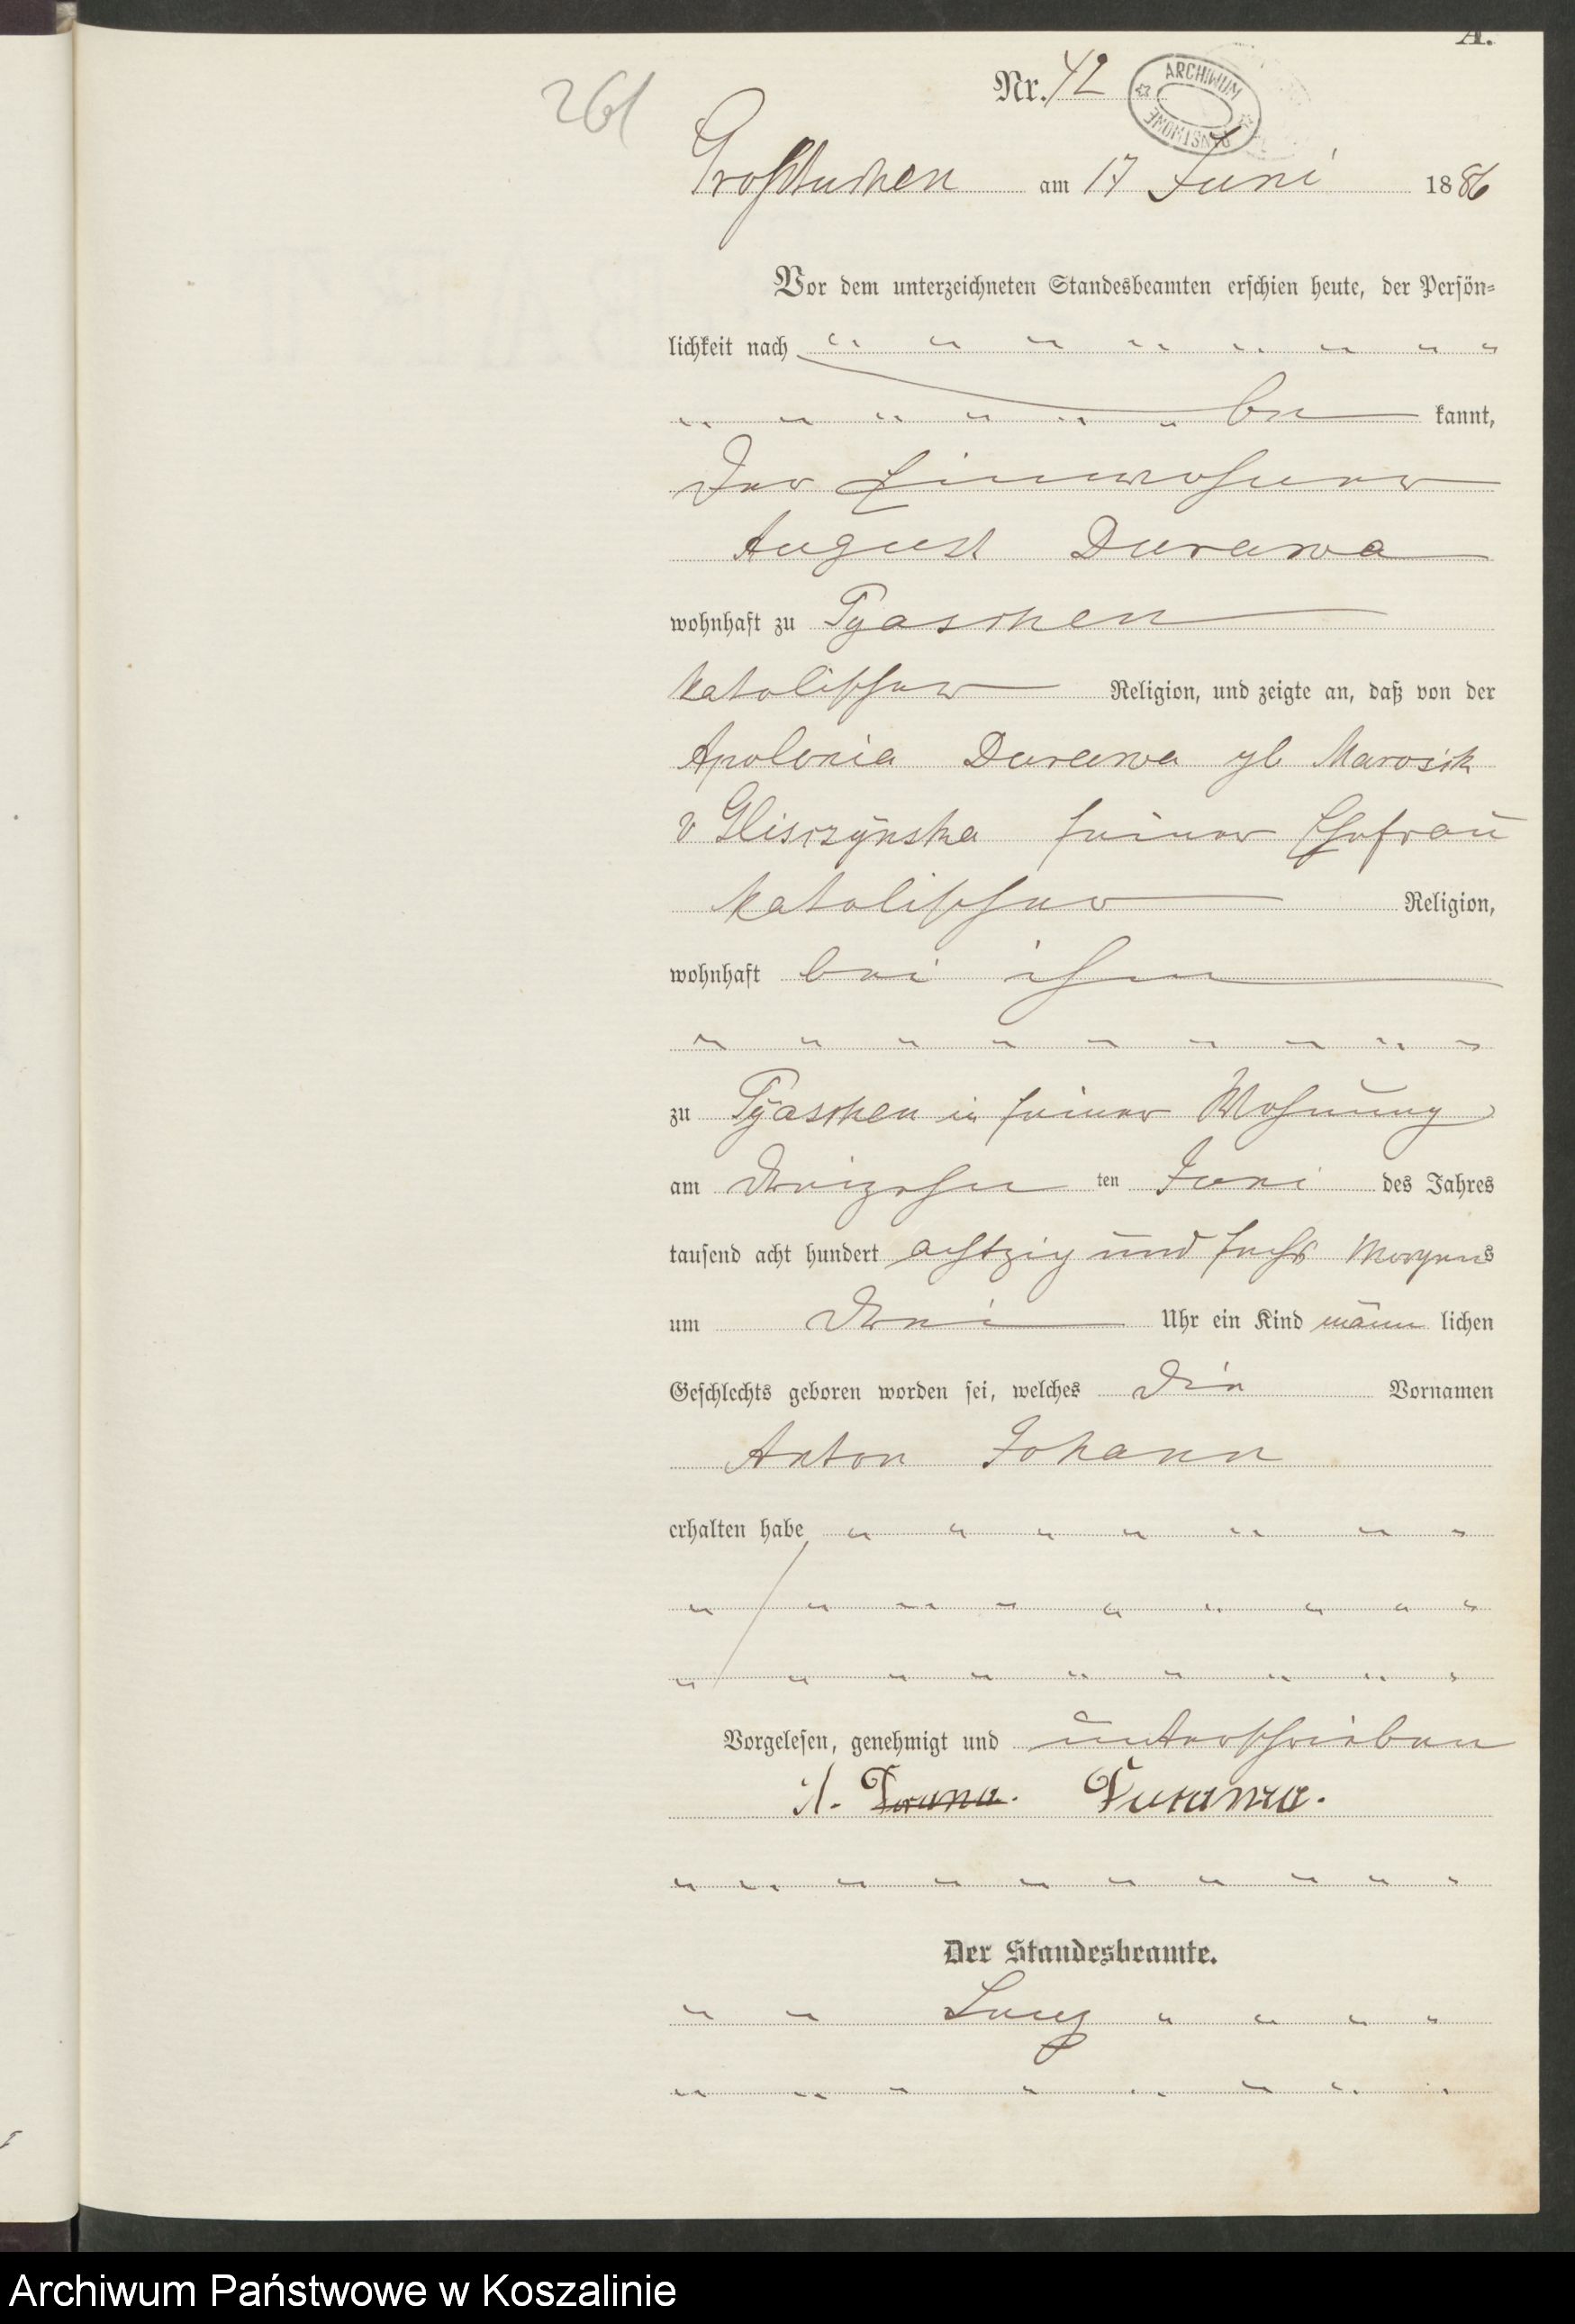 A.
261
Nr. 42
ARCHIWUM PAŃSTWOWE
Großtuchen am 17 Juni 1886
Vor dem unterzeichneten Standesbeamten erschien heute, der Persön-
lichkeit nach
be kannt,
der Einwohner
August Durawa
wohnhaft zu Pyaschen
katolischer Religion, und zeigte an, daß von der
Apolonia Durawa geb
v Glisczynska seiner Ehefrau
katolischer Religion,
wohnhaft bei ihm
zu Pyaschen in seiner Wohnung
am dreizehn ten Juni des Jahres
tausend acht hundert achtzig und sechs Morgens
um drei Uhr ein Kind männ lichen
Geschlechts geboren worden sei, welches die Vornamen
Anton Johann
erhalten habe
Vorgelesen, genehmigt und unterschrieben
A. Durawa.
Der Standesbeamte.
Archiwum Państwowe w Koszalinie